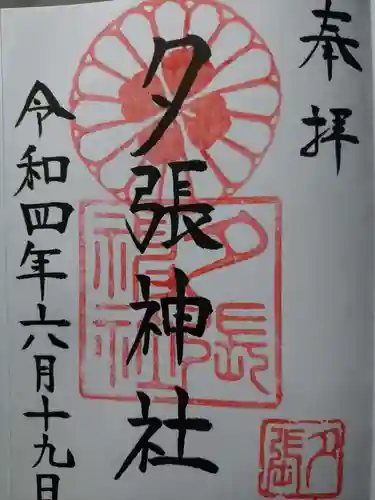 奉拝
夕張神社
夕張
神社
令和四年六月十九日
夕張